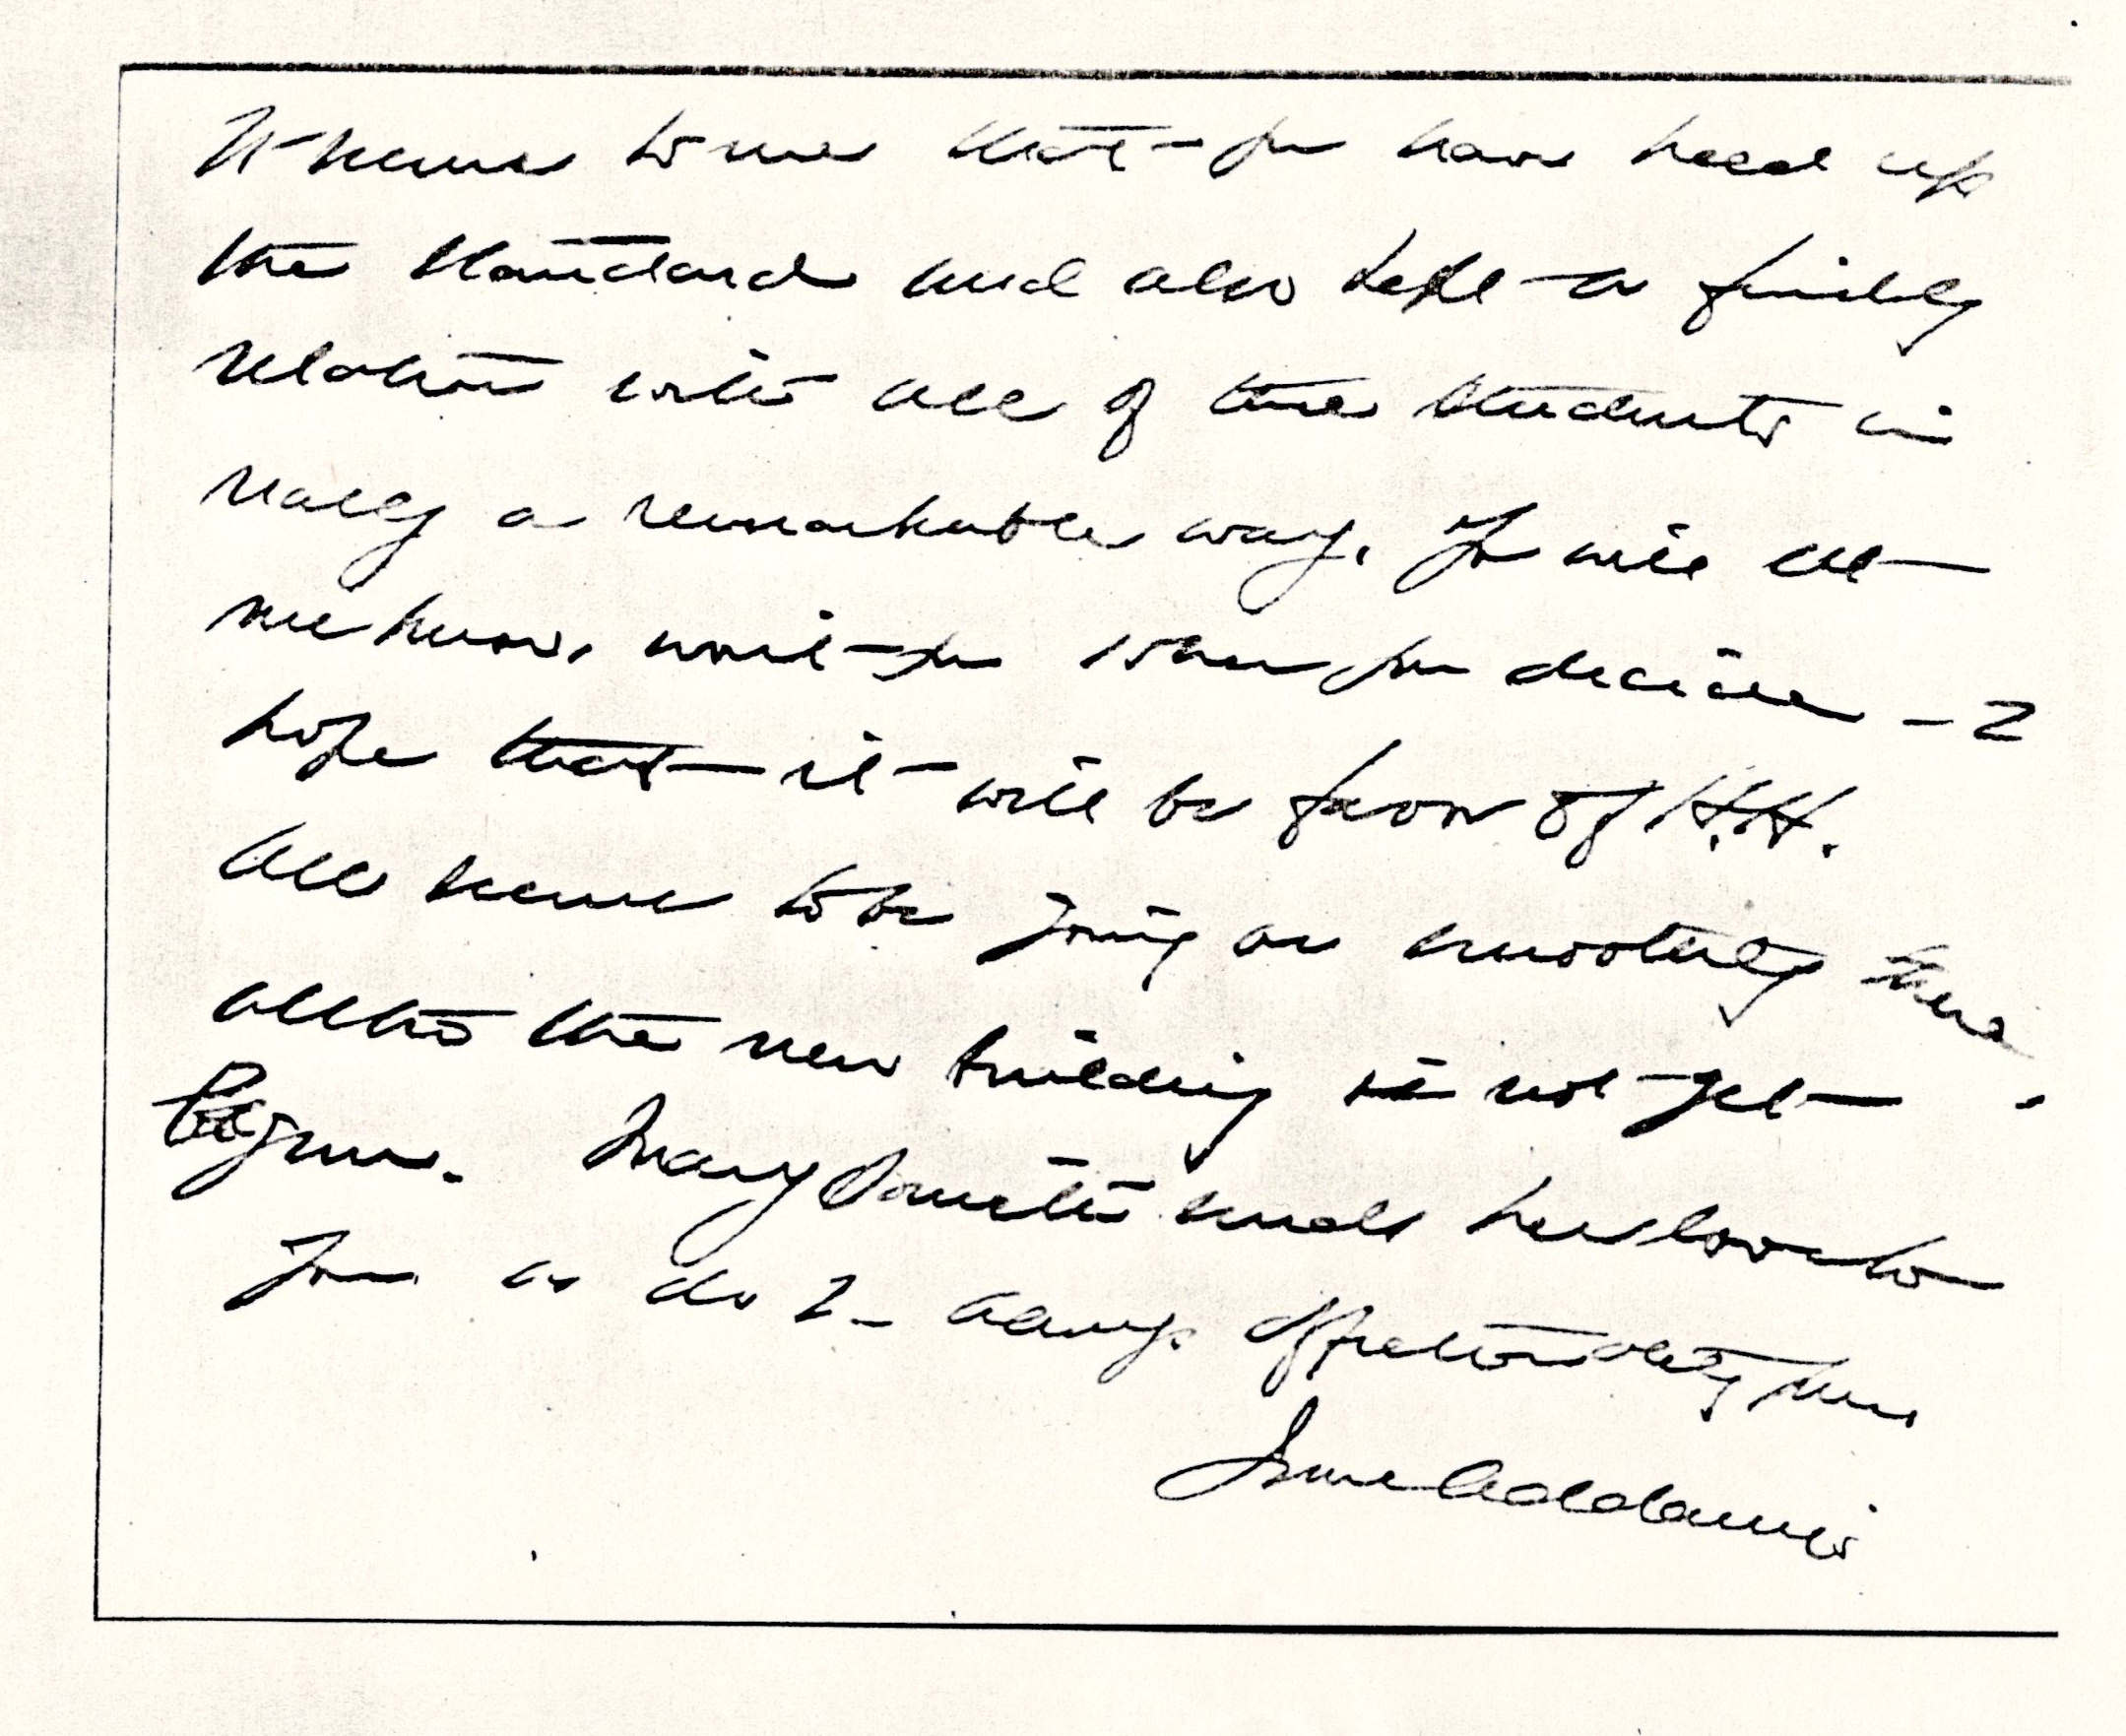 It seems to me that you have held up
the standard and also kept a friendly
relation with all of the students in
really a remarkable way. You will let
me know, won't you when you decide — I
hope that it will be favor of H.H.
All seems to be going on smoothly there
altho the new building is not yet
begun. Mary Smith sends her love to
you as do I — always affectionately yours
Jane Addams